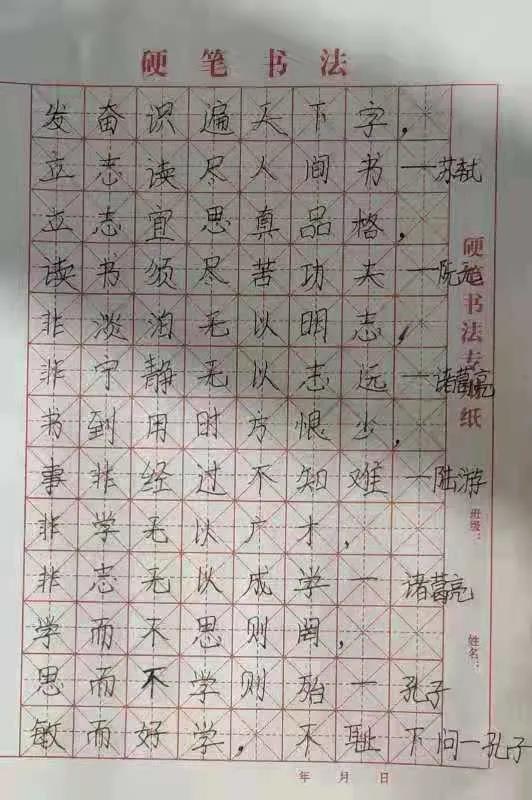 硬笔书法
发奋识遍天下字，
立志读尽人间书—苏轼
立志宜思真品格，
读书须尽苦功夫—阮元
非淡泊无以明志，
非宁静无以志远—诸葛亮
书到用时方恨少，
事非经过不知难—陆游
非学无以广才，
非志无以成学—诸葛亮
学而不思则罔，
思而不学则殆—孔子
敏而好学，不耻下问—孔子
硬笔书法专用纸
班级：
姓名：
年 月 日